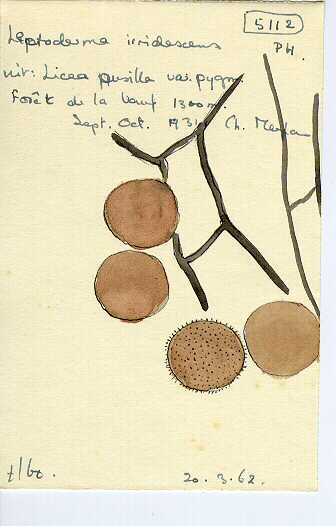 5112
Leptoderma irridescens
PH.
mit: Licea pusilla var. pygm.
Forêt de la
1300m.
Sept. Oct. 1931 Ch. Meylan
20.3.62.